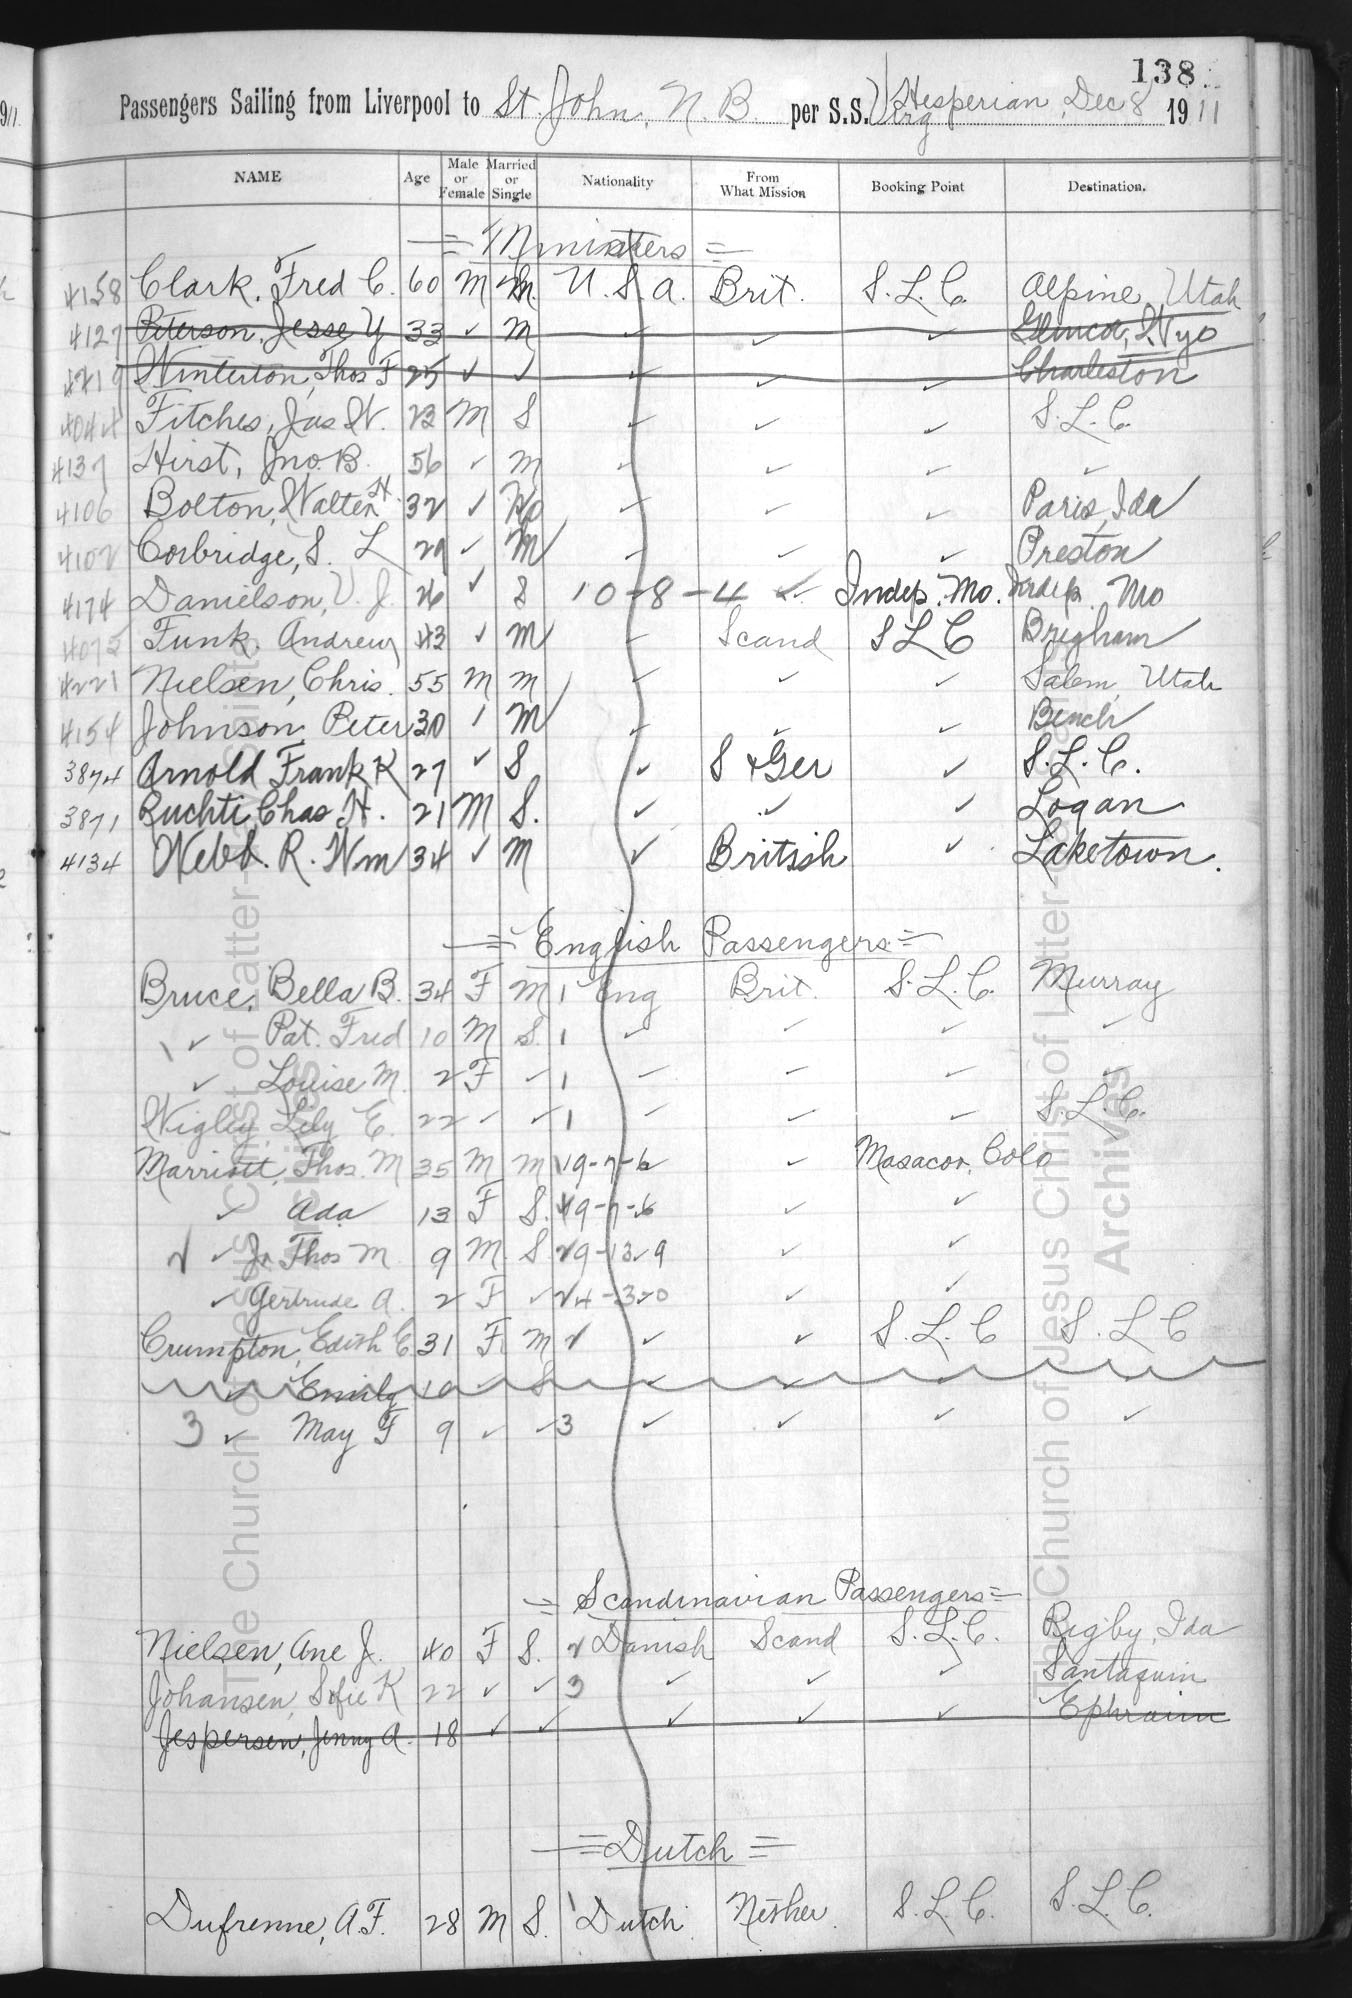 138
Passengers Sailing from Liverpool to St. John, N. B. per S.S. Virg Hesperian, Dec 8 1911
NAME Age Male or Female Married or Single Nationality From What Mission Booking Point Destination.
= Ministers =
4158 Clark, Fred C. 60 M M. U. S. A. Brit. S. L. C. Alpine, Utah
4127 Peterson, Jesse Y 33 ✓ M ✓ ✓ ✓ Wyo
4219 Winterton, Thos F 25 ✓ ✓ ✓ ✓ ✓ Charleston
4044 Fitches, Jas W. 23 M S ✓ ✓ ✓ S. L. C.
4137 Hirst, Jno. B. 56 ✓ M ✓ ✓ ✓ ✓
4106 Bolton, Walter H. 32 ✓ ✓ ✓ ✓ Paris, Ida
4102 Corbridge, S. L 29 ✓ M ✓ ✓ ✓ Preston
4174 Danielson, V. J. 26 ✓ S 10-8-4 ✓ Indep. Mo. Indep. Mo
4075 Funk, Andrew 43 ✓ M ✓ Scand S L C Brigham
4221 Nielsen, Chris. 55 M M ✓ ✓ ✓ Salem, Utah
4154 Johnson, Peter 30 ✓ M ✓ ✓ ✓ Bench
3874 Arnold Frank K 27 ✓ S ✓ S & Ger ✓ S. L. C.
3871 Ruchti Chas H. 21 M S. ✓ ✓ ✓ Logan
4134 Webb. R. Wm 34 ✓ M ✓ British ✓ Laketown.
= English Passengers =
Bruce, Bella B. 34 F M 1 Eng Brit. S. L. C. Murray
1 ✓ Pat. Fred 10 M S. 1 ✓ ✓ ✓ ✓
✓ Louise M. 2 F ✓ 1 ✓ ✓ ✓ ✓
Wigley, Lily E. 22 ✓ ✓ 1 ✓ ✓ ✓ S. L. C.
Marriott, Thos. M 35 M M 19-7-6 ✓ Masacor, Colo
✓ Ada 13 F S. 19-7-6 ✓ ✓
2 ✓ Jr Thos M. 9 M. S. 2 9-13-9 ✓ ✓
✓ Gertrude A. 2 F ✓ 2 4-3-0 ✓ ✓
Crumpton, Edith E. 31 F. M 2 ✓ ✓ S. L. C S. L C
✓ Emily 10 ✓ S ✓ ✓ ✓
3 ✓ May F 9 ✓ ✓ 3 ✓ ✓ ✓ ✓
= Scandinavian Passengers =
Nielsen, Ane J. 40 F S. 2 Danish Scand S. L. C. Rigby, Ida
Johansen, Sofie K 22 ✓ ✓ 3 ✓ ✓ ✓ Santaquin
Jespersen, Jenny A. 18 ✓ ✓ ✓ ✓ ✓ Ephraim
= Dutch =
Dufrenne, A. F. 28 M S. 1 Dutch Nether. S. L. C. S. L. C.
The Church of Jesus Christ of Latter-day Saints
Archives
The Church of Jesus Christ of Latter-day Saints
Archives